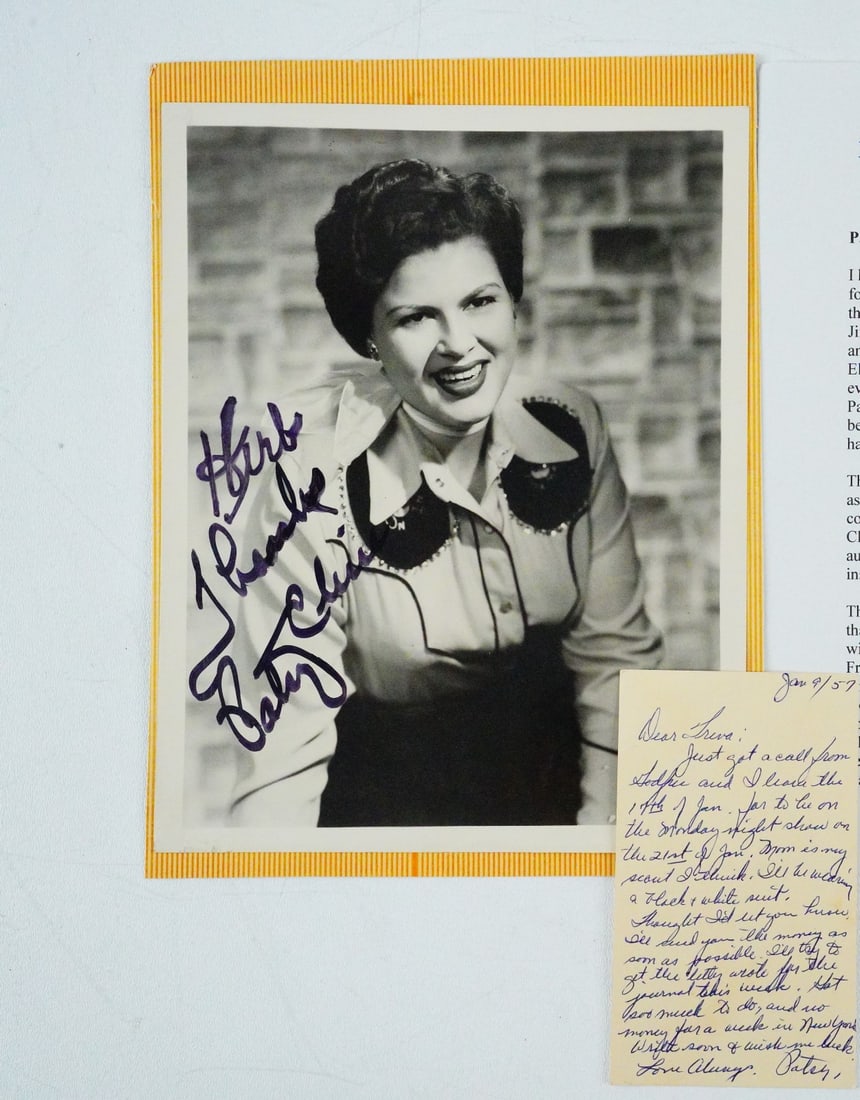 Herb
Thanks
Patsy Cline
P
I
fo
th
Ji
an
El
ev
Pa
be
ha
Th
as
co
Cl
au
in
Th
tha
wi
Fr
Jan 9/57
Dear Treva:
Just got a call from
Godfrey and I leave the
17th of Jan. for to be on
the Monday night show on
the 21st of Jan. Mom is my
scout I think. I'll be wearing
a black & white suit.
Thought I'd let you know.
I'll send you the money as
soon as possible. I'll try to
get the letter wrote for the
journal this week. Got
soo much to do, and no
money for a week in New York
Write soon & wish me luck.
Love Always. Patsy,